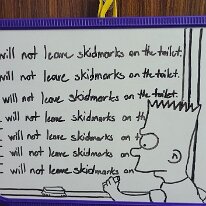 will not leave skidmarks on the toilet.
will not leave skidmarks on the toilet.
will not leave skidmarks on the toilet.
I will not leave skidmarks on th
I will not leave skidmarks on
I will not leave skidmarks on